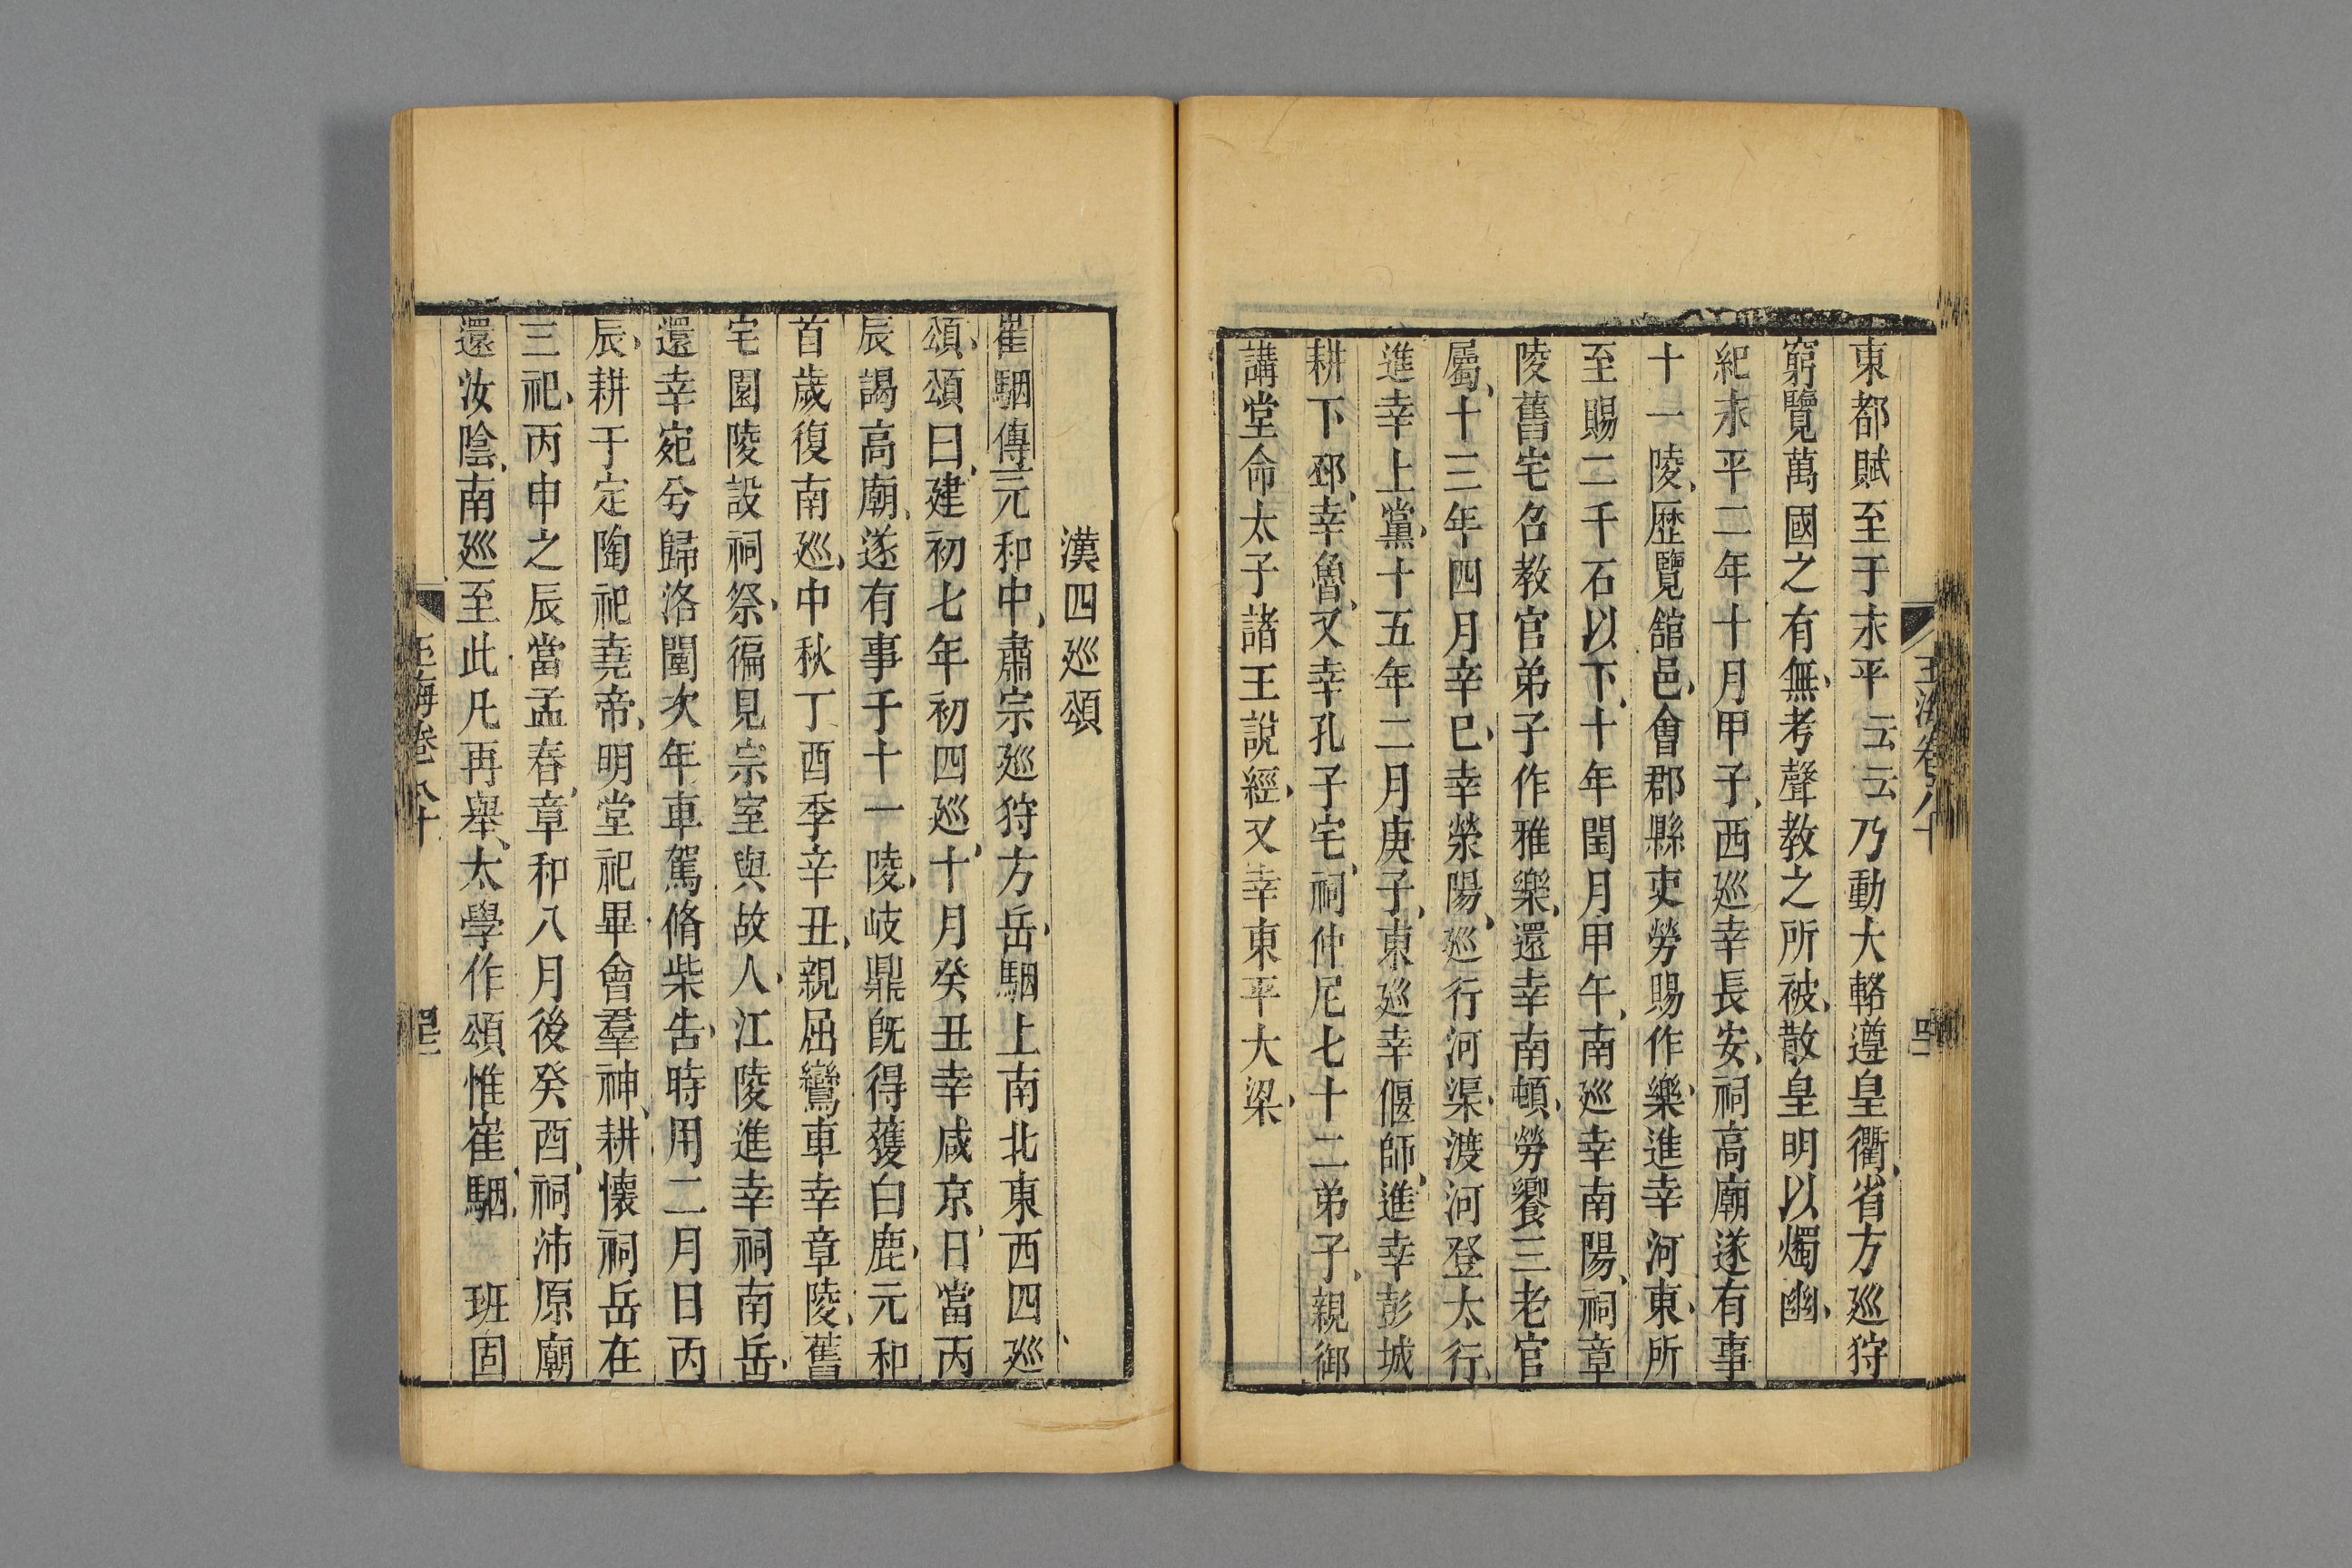 東都賦至于永平云云乃動大輅遵皇衢省方廵狩
窮覽萬國之有無考聲教之所被散皇明以燭幽
紀永平二年十月甲子西廵幸長安祠高廟遂有事
十一陵歴覽舘邑會郡縣吏勞賜作樂進幸河東所
至賜二千石以下十年閏月甲午南廵幸南陽祠章
陵舊宅召教官弟子作雅樂還幸南頓勞饗三老官
屬十三年四月辛巳幸滎陽廵行河渠渡河登太行
進幸上黨十五年二月庚子東廵幸偃師進幸彭城
耕下邳幸魯又幸孔子宅祠仲尼七十二弟子親御
講堂命太子諸王說經又幸東平大梁
漢四廵頌
崔駰傳元和中肅宗廵狩方岳駰上南北東西四廵
頌頌曰建初七年初四廵十月癸丑幸咸京日當丙
辰謁高廟遂有事于十一陵岐鼎旣得獲白鹿元和
首歲復南廵中秋丁酉季辛丑親屈鸞車幸章陵舊
宅園陵設祠祭徧見宗室與故人江陵進幸祠南岳
還幸宛兮歸洛闉次年車駕脩柴告時用二月日丙
辰耕于定陶祀堯帝明堂祀畢會羣神耕懷祠岳在
三祀丙申之辰當孟春章和八月後癸酉祠沛原廟
還汝陰南廵至此凡再舉太學作頌惟崔駰　班固
玉海卷八十
玉海卷八十